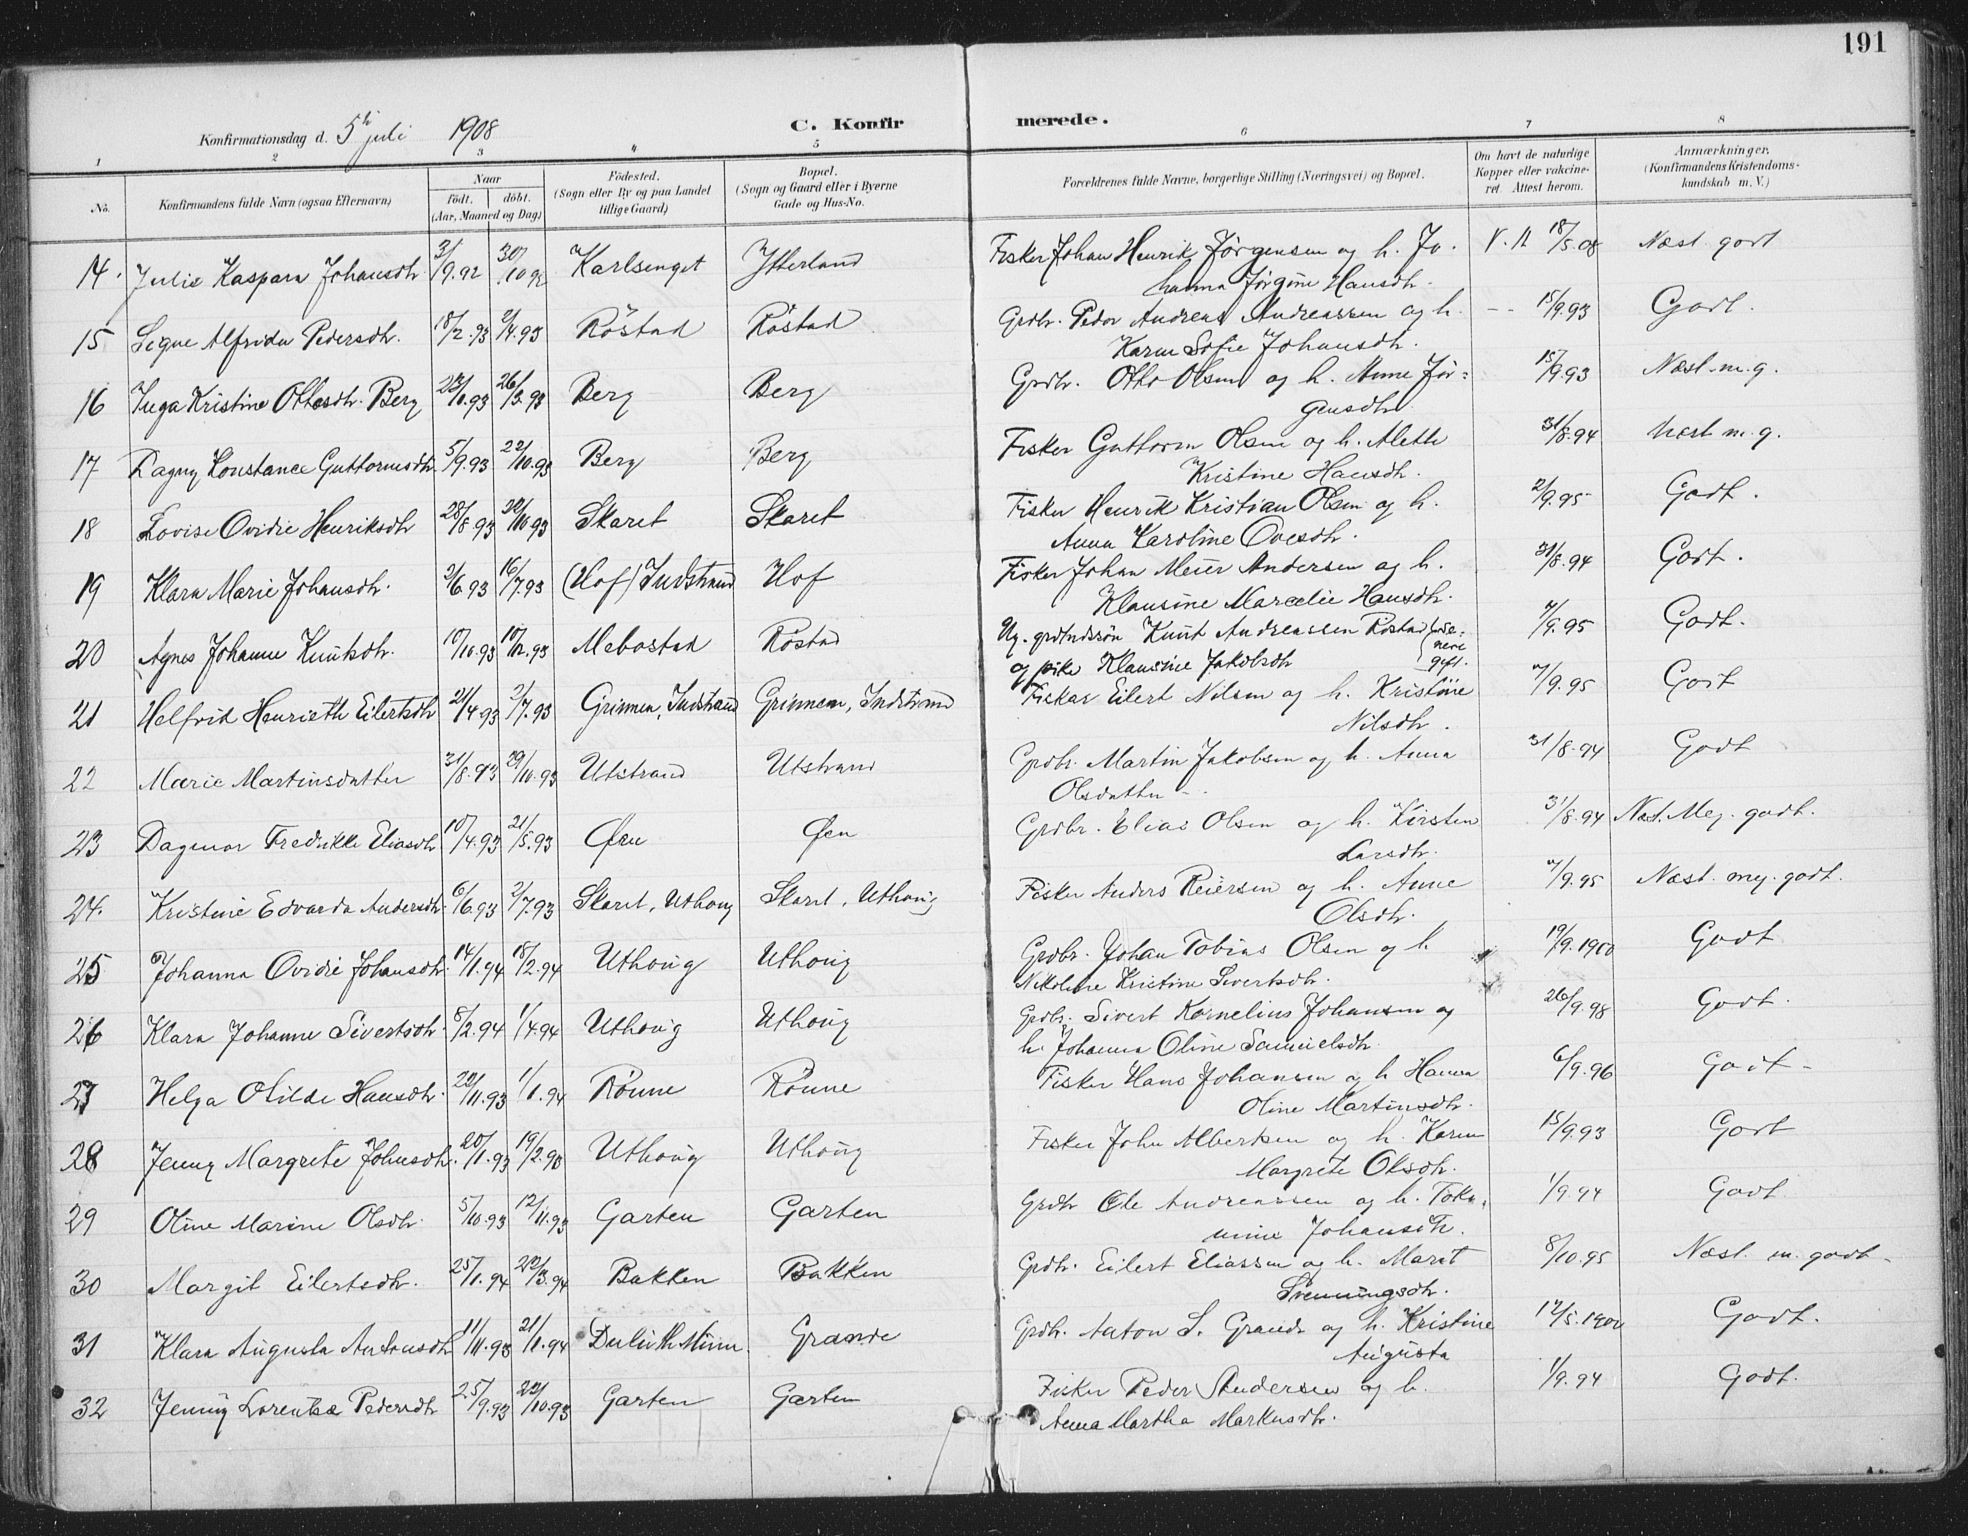 191
Konfirmationsdag d. 5te juli 1908 C. Konfirmerede.
1 2 3 4 5 6 7 8
No. Konfirmandens fulde Navn (ogsaa Efternavn) Naar födt. döbt. (Aar, Maaned og Dag) Födested. (Sogn eller By og paa Landet tillige Gaard) Bopæl. (Sogn og Gaard eller i Byerne Gade og Hus-No. Forældrenes fulde Navne, borgerlige Stilling (Næringsvei) og Bopæl. Om havt de naturlige Kopper eller vakcineret. Attest herom. Anmærkninger. (Konfirmandens Kristendomskundskab m. V.)
14. Julie Kaspara Johansdtr 3/9.92 30/10 92 Karlsenget Ytterland Fisker Johan Henrik Jørgensen og h. Jo- 18/5.08 Næst godt
hanna Jørgine Hansdtr.
15 Signe Alfrida Pedersdtr. 18/2.93 2/4.93 Röstad Röstad Grdbr. Peder Andreas Andreassen og h. -- 15/9.93 Godt.
Karen Sofie Johansdtr.
16 Inga Kristine Ottesdtr. Berg 26/3.93 Berg Berg Grdbr. Otto Olsen og h. Anne Jör- 15/9.93 Næst. m. g.
gensdtr
17 Dagny Konstance Guttormsdtr 5/9.93 22/10.93 Berg Berg Fisker Guttorm Olsen og h. Alette 31/8.94 Næst m. g.
Kristine Hansdtr.
18 Lovise Ovidie Henriksdtr 28/8.93 22/10.93 Skaret Skaret Fisker Henrik Kristian Olsen og h. 2/9.95 Godt.
Anna Karoline Ovesdtr.
19 Klara Marie Johansdtr. 2/6.93 16/7.93 (Hof) Indstrand Hof Fisker Johan Meier Andersen og h. 31/8.94 Godt.
Klausine Marcelie Hansdtr.
20 Agnes Johanne Knutsdtr. 10/10.93 10/12.93 Mebostad Röstad Ug. grdmdssön Knut Andreassen Röstad senere 7/9.95 Godt.
og pike Klausine Jakobsdtr gift.
21 Helfrid Henriette Eilertsdtr 21/4.93 2/7.93 Grinnen, Indstrand Grinnen, Indstrand Fisker Eilert Nilsen og h. Kristine 7/9.95 Godt
Nilsdtr.
22 Marie Martinsdatter 31/8.93 29/10.93 Utstrand Utstrand Grdbr. Martin Jakobsen og h. Anna 31/8.94 Godt
Olsdatter -
23 Dagmar Fredrikke Eliasdtr 10/4.93 21/5.93 Øen Øen Grdbr. Elias Olsen og h. Kirsten 31/8.94 Næst. Meg. godt.
Larsdtr.
24. Kristine Edvarda Andersdtr. 6/6.93 2/7.93 Skaret, Uthoug Skaret, Uthoug Fisker Anders Reiersen og h. Anne 7/9.95 Næst. meg. godt.
Olsdtr.
25 Johanna Ovidie Johansdtr. 14/1.94 18/2.94 Uthoug Uthoug Grdbr. Johan Tobias Olsen og h 19/9.1900 Godt
Nikoline Kristine Sivertsdtr.
26 Klara Johanne Sivertsdtr 8/2.94 1/4.94 Uthoug Uthoug Grdbr. Sivert Kornelius Johansen og 26/9.98 Godt.
h. Johanna Oline Samuelsdtr.
27 Helga Olilde Hansdtr. 20/11.93 1/1.94 Rönne Rönne Fisker Hans Johansen og h Hanna 6/9.96 Godt -
Oline Martinsdtr.
28 Jenny Margrete Johnsdtr. 20/1.93 19/2.93 Uthoug Uthoug Fisker John Albertsen og h. Karen 15/9.93 Godt
Margrete Olsdtr.
29 Oline Marine Olsdtr. 5/10.93 12/11.93 Garten Garten Grdbr Ole Andreassen og h. Toka- 1/9.94 Godt
mine Johansdtr.
30 Margit Eilertsdtr. 25/1.94 22/3.94 Bakken Bakken Grdbr. Eilert Eliassen og h. Marit 8/10.95 Næst. m. godt -
Svenningsdtr.
31 Klara Augusta Antonsdtr 11/11.93 21/1.94 Duluth Minn. Grande Grdbr. Anton S. Grande og h. Kristine Godt.
Augusta
32 Jenny Lorentze Pedersdtr 25/9.93 22/10.93 Garten Garten Fisker Peder Andersen og h. 1/9.94 Godt.
Anna Martha Markusdtr.